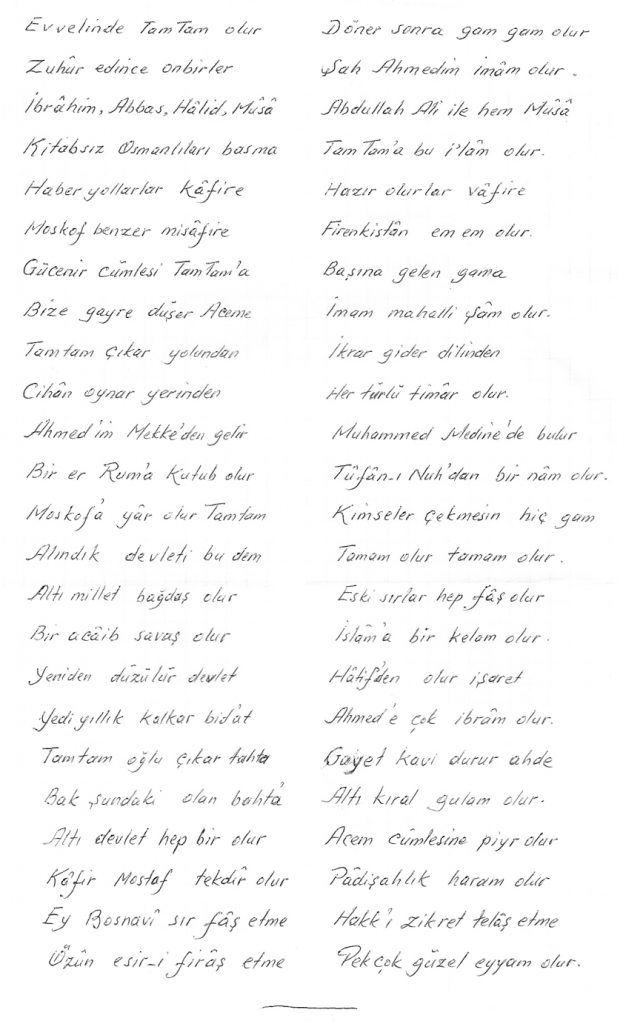 Evvelinde TamTam olur Döner sonra gam gam olur
Zuhûr edince onbirler Şah Ahmedim imâm olur.
İbrâhim, Abbas, Hâlid, Mûsâ Abdullah Ali ile hem Mûsâ
Kitabsız Osmanlıları basma TamTam'a bu i'lâm olur.
Haber yollarlar kâfire Hazır olurlar vâfire
Moskof benzer misâfire Firenkistân em em olur.
Gücenir cümlesi TamTam'a Başına gelen gama
Bize gayre düşer Aceme İmam mahalli Şâm olur.
Tamtam çıkar yolundan İkrar gider dilinden
Cihân oynar yerinden Her türlü timâr olur.
Ahmed'im Mekke'den gelir Muhammed Medine'de bulur
Bir er Rum'a Kutub olur Tûfân-ı Nuh'dan bir nâm olur.
Moskof'a yâr olur Tamtam Kimseler çekmesin hiç gam
Alındık devleti bu dem Tamam olur tamam olur.
Altı millet bağdaş olur Eski sırlar hep fâş olur
Bir acâib savaş olur İslâm'a bir kelam olur.
Yeniden düzülür devlet Hâtif'den olur işaret
Yedi yıllık kalkar bid'at Ahmed'e çok ibrâm olur.
Tamtam oğlu çıkar tahta Gayet kavi durur ahde
Bak şundaki olan bahta Altı kıral gulam olur.
Altı devlet hep bir olur Acem cümlesine piyr olur
Kâfir Mostof tekdîr olur Pâdişahlık haram olur
Ey Bosnavî sır fâş etme Hakk'ı zikret telâş etme
Özün esir-i firâş etme Pek çok güzel eyyam olur.